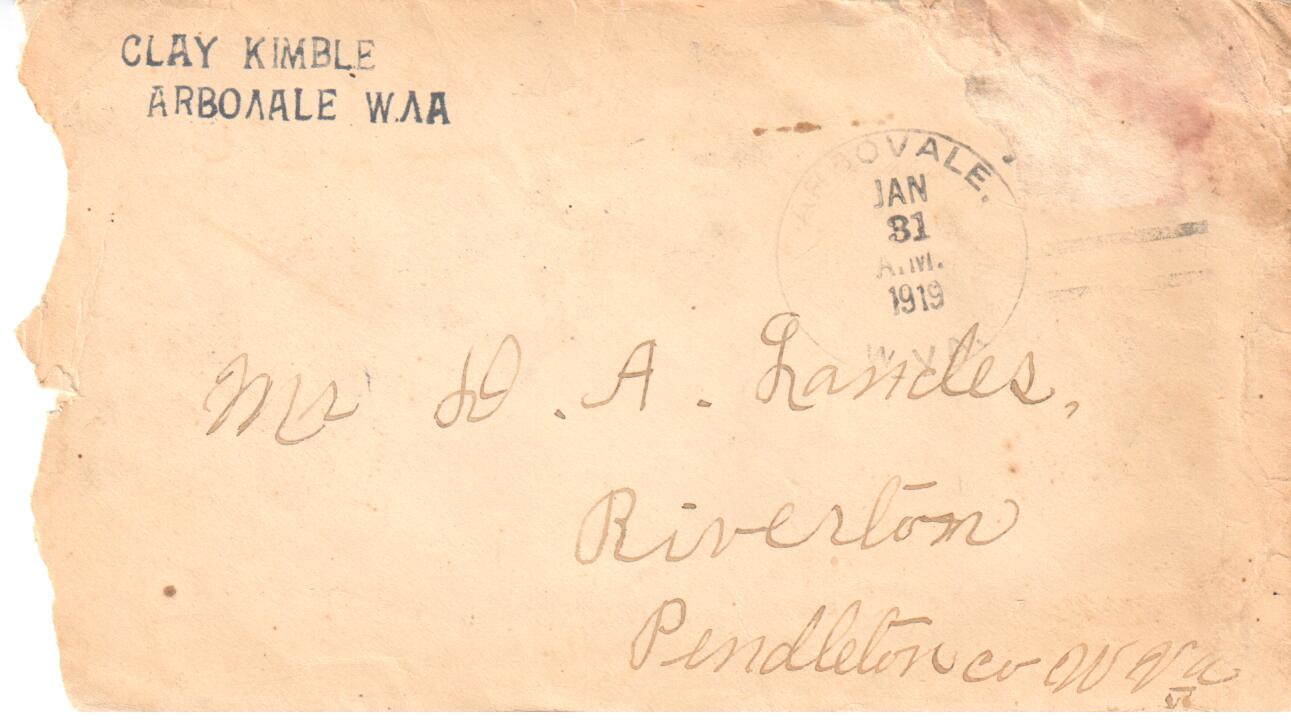 CLAY KIMBLE
ARBOΛALE W.ΛA
ARBOVALE.
JAN
31
A.M.
1919
W.VA.
Mr D. A. Landes,
Riverton
Pendleton co W Va